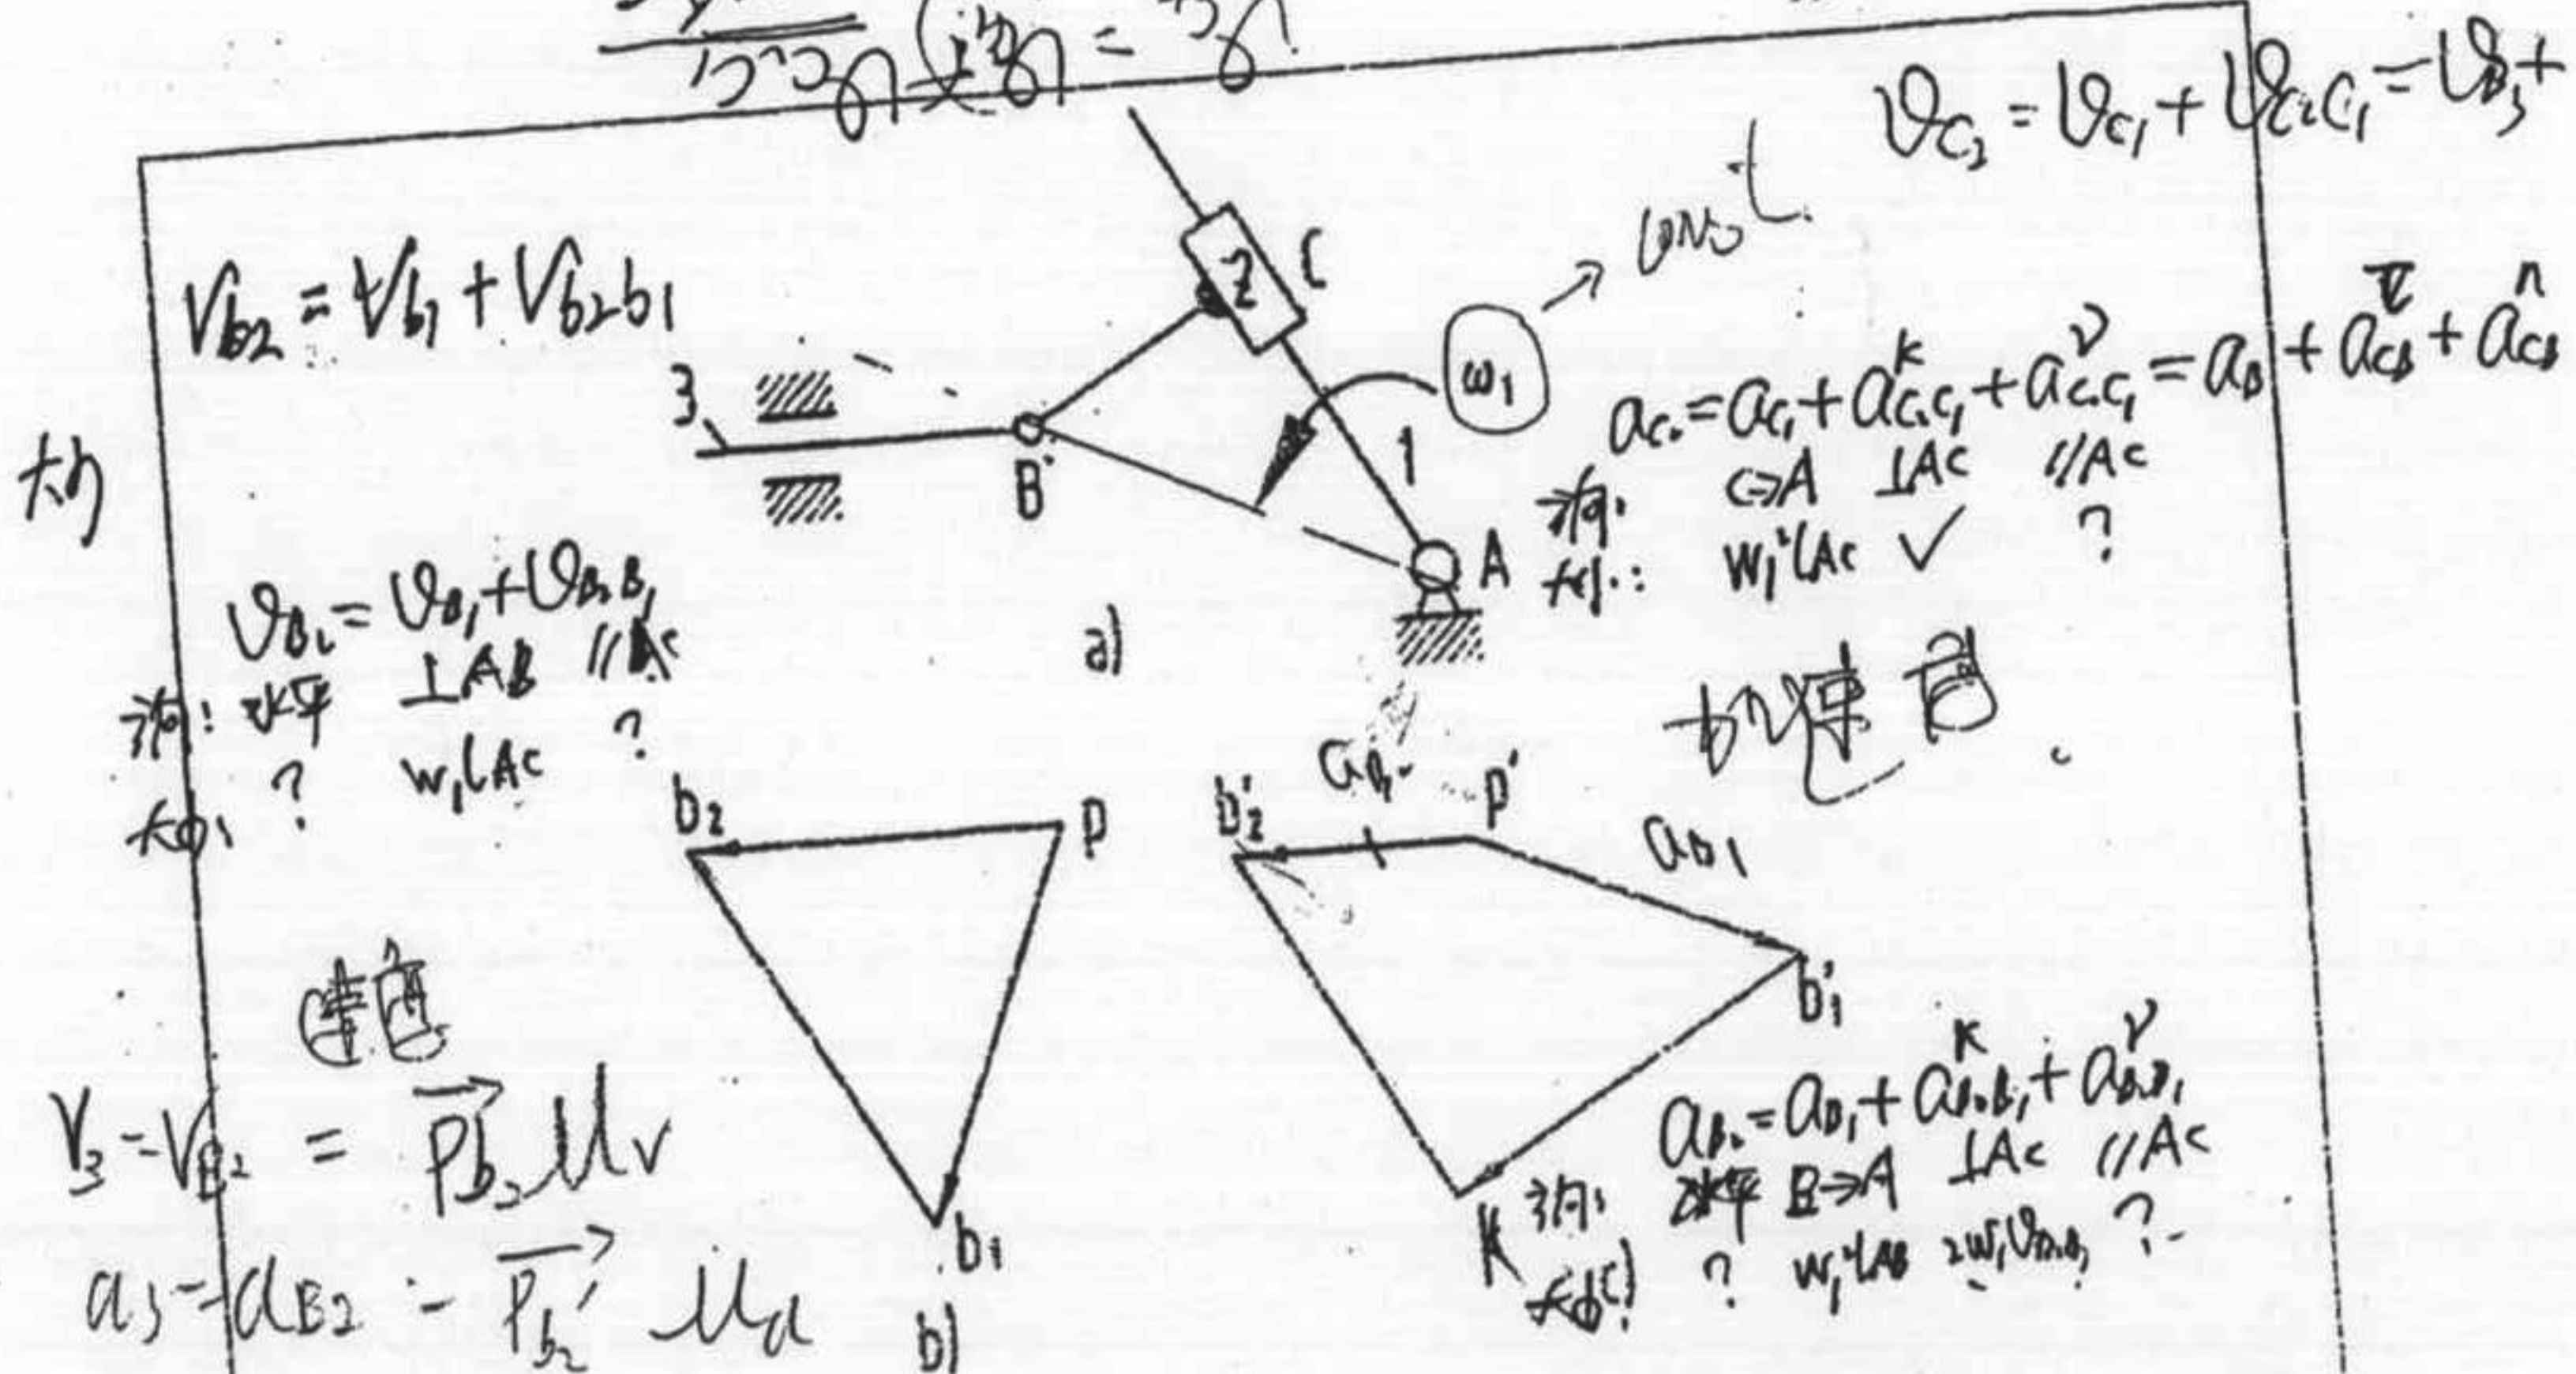 V_C2 = V_C1 + V_C2C1 = V_B3 +
const.
V_b2 = V_b1 + V_b2b1
2
C
3
B
ω1
1
A
a_C2 = a_C1 + a^K_C2C1 + a^r_C2C1 = a_B + a^τ_CB + a^n_CB
方向: C→A ⊥AC //AC
大小: ω1²l_AC ✓ ?
大小
V_B2 = V_B1 + V_B2B1
方向: 水平 ⊥AB //AC
大小: ? ω1 l_AC ?
a)
加速度
b2
P
b1
b2'
a_B2
P'
a_B1
b1'
K
速度
V3 = V_B2 = Pb2 μv
a3 = a_B2 = P'b2' μa
a_B2 = a_B1 + a^K_B2B1 + a^r_B2B1
方向: 水平 B→A ⊥AC //AC
大小: ? ω1²l_AB 2ω1V_B2B1 ?
b)